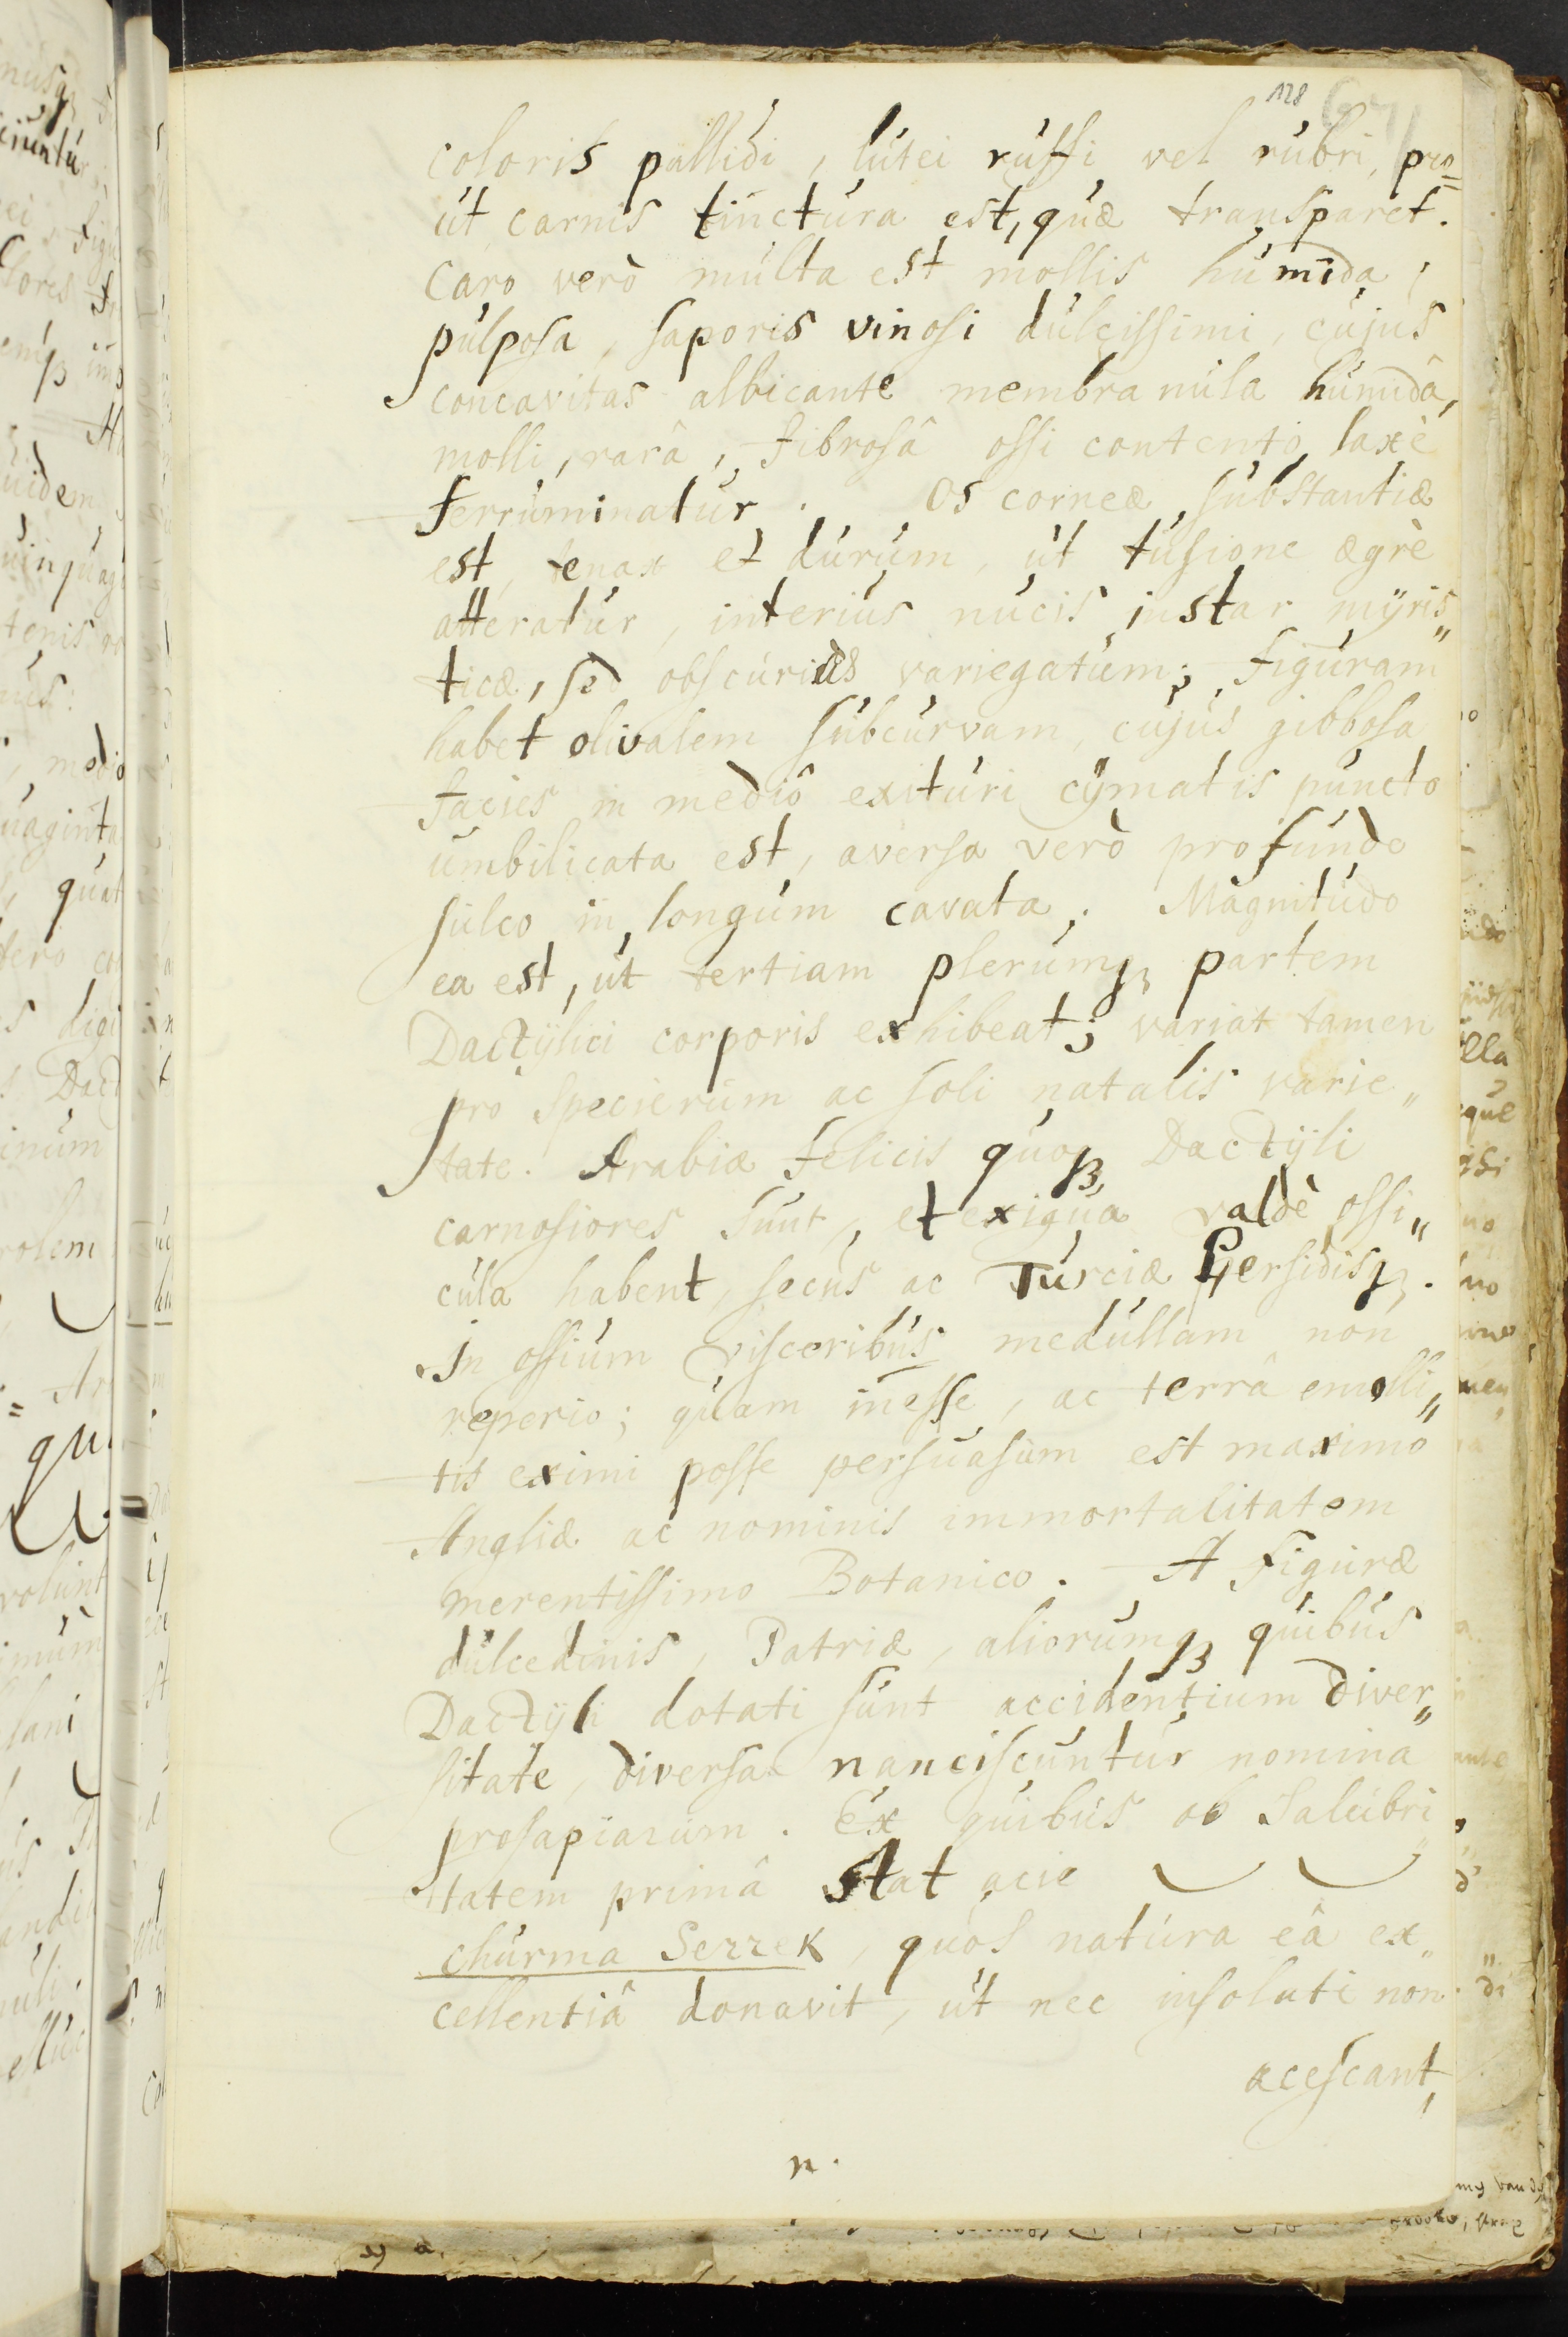 128
coloris pallidi, lutei ruffi vel rubri, pro=
ut carnis tinctura est, quæ transparet.
Caro verò multa est mollis humida,
pulposa, saporis vinosi dulcissimi, cujus
concavitas albicante membranula humidâ,
molli, rarâ, fibrosâ ossi contento laxè
ferruminatur. Os corneæ substantiæ
est, tenax et durum, ut tusione ægrè
atteratur, interius nucis instar myris„
ticæ, sed obscurius variegatum; figuram
habet olivalem subcurvam, cujus gibbosa
facies in mediô exituri cÿmatis puncto
umbilicata est, aversa verò profundo
sulco in longum cavata. Magnitudo
ea est, ut tertiam plerumq3 partem
Dactÿlici corporis exhibeat; variat tamen
pro specierum ac soli natalis varie„
tate. Arabiæ felicis quoq3 Dactÿli
carnosiores sunt, et exigua valdè ossi„
cula habent, secus ac Turciæ Persidisq3.
In ossium visceribus medullam non
reperio; quam inesse, ac terrâ emolli„
tis eximi posse persuasum est maximo
Angliæ ac nominis immortalitatem
merentissimo Botanico. A figuræ
dulcedinis, Patriæ, aliorumq3 quibus
Dactÿli dotati sunt accidentium diver„
sitate, diversa nanciscuntur nomina
prosapiarum. Ex quibus ob Salubri„
tatem primâ stat acie
churma Serrek, quos natura eâ ex„
cellentiâ donavit, ut nec insolati non
acescant,
n.